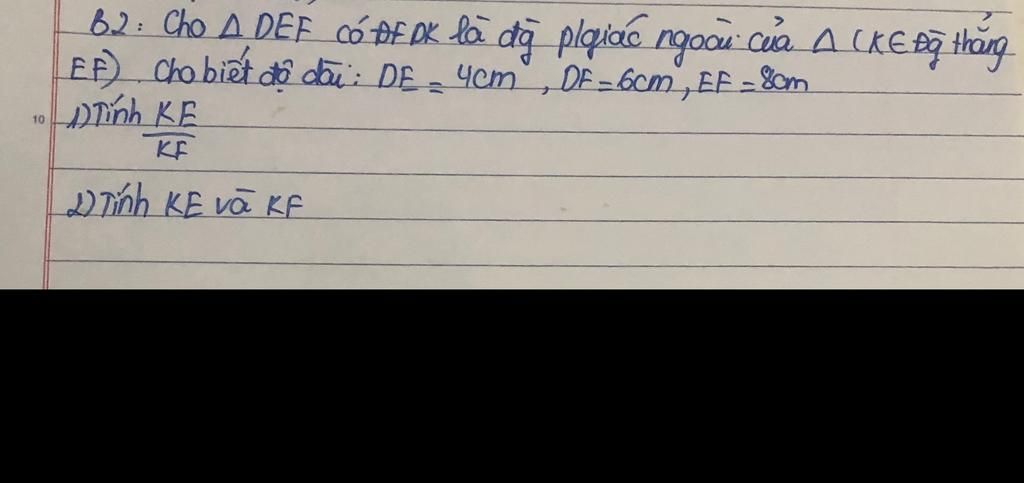 B2: Cho Δ DEF có DK là đg p/giác ngoài của Δ (K∈ Đg thẳng
EF). Cho biết độ dài: DE = 4cm, DF = 6cm, EF = 8cm
10 1) Tính KE
KF
2) Tính KE và KF